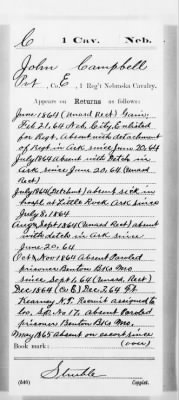 C | 1 Cav. | Neb.
John Campbell
Pvt, Co. E, 1 Reg't Nebraska Cavalry.
Appears on Returns as follows:
June 1864 (Unasd Rect) Gain,
Feb 21, 64 Neb. City, Enlisted
for Regt. Absent with detachment
of Regt in Ark. since June 20, 64
July 1864 Absent with Detch in
Ark. since June 20, 64 (Unasd
Rect)
July 1864 (Detchmt) absent sick in
hospl at Little Rock Ark since
July 8, 1864
Aug & Sept 1864 (Unasd Rect) absent
with detch in Ark since
June 20-64
Oct & Nov 1864 Absent Paroled
prisoner Benton Bks Mo
since Sept 1, 64 (Unasd, Rect)
Dec 1864 (Co E) Dec 2, 64 Ft
Kearney N.T. Recruit assigned to
Co, S.R. No 17. Absent Paroled
prisoner Benton Bks Mo.
May 1865 Absent on escort since
Book mark: (over)
(546) Copyist.